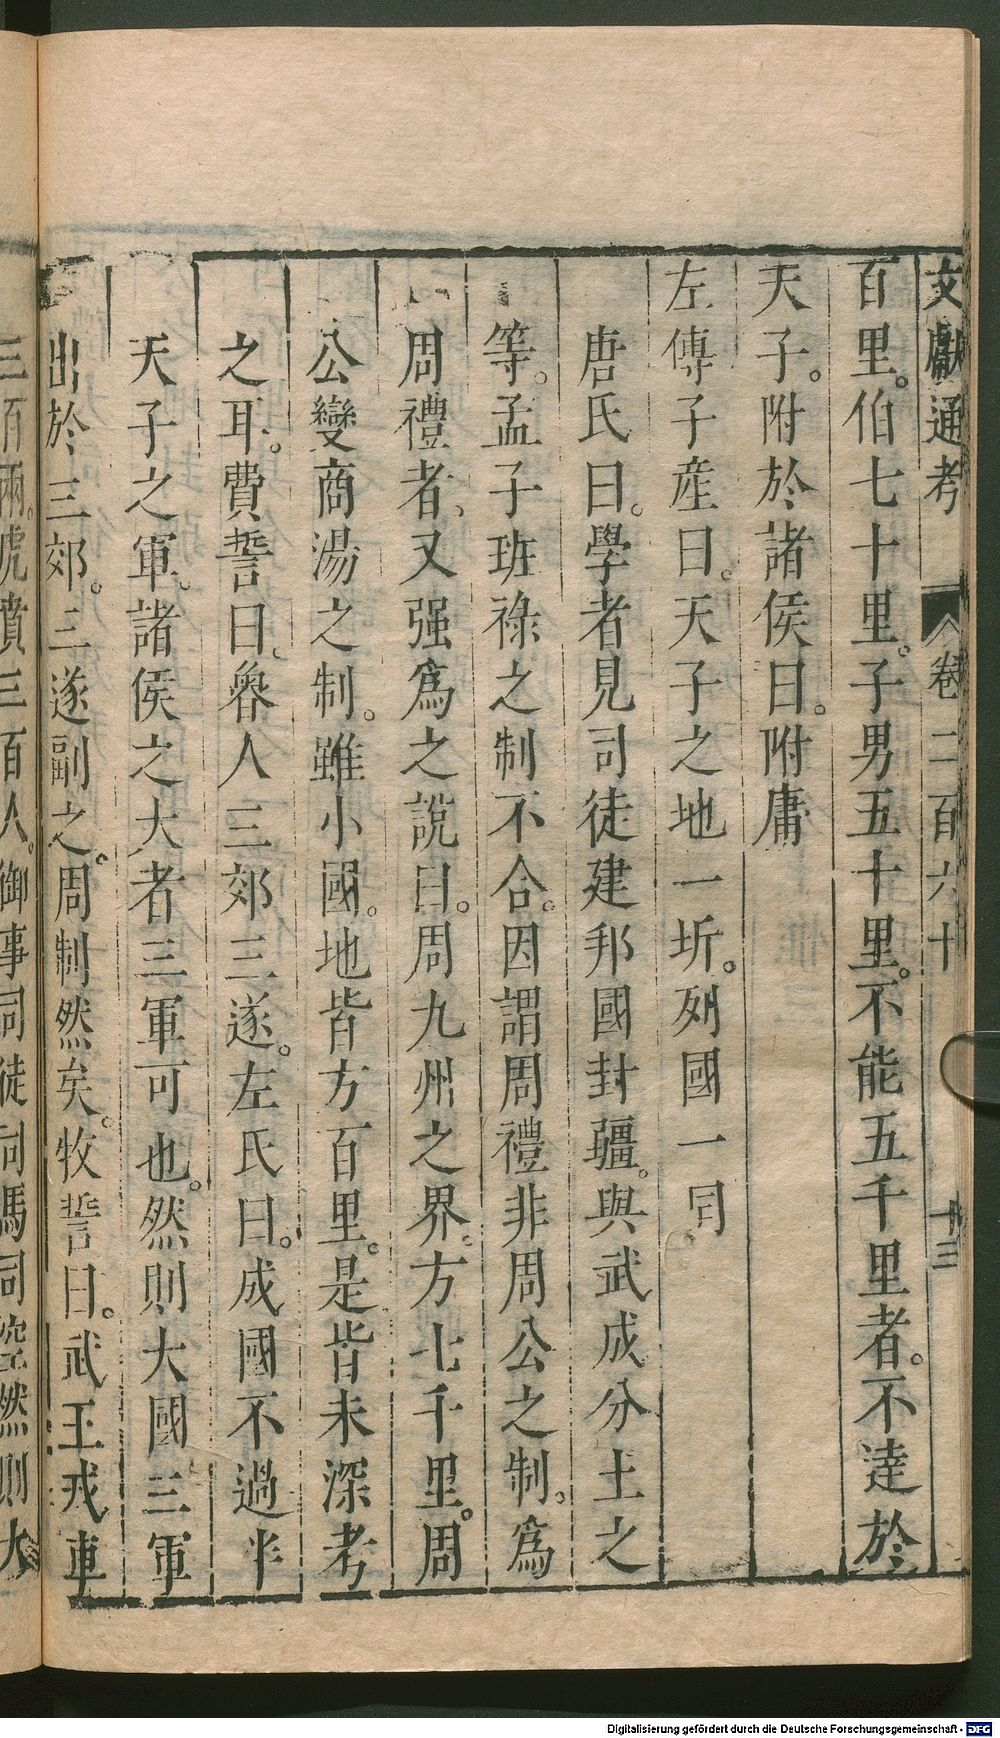 文獻通考 卷二百六十 十三
百里。伯七十里。子男五十里。不能五千里者。不達於
天子。附於諸侯曰。附庸
左傳子産曰。天子之地一圻。列國一同。
唐氏曰。學者見司徒建邦國封疆。與武成分土之
等。孟子班祿之制不合。因謂周禮非周公之制。爲
周禮者、又强爲之說曰。周九州之界。方七千里。周
公變商湯之制。雖小國。地皆方百里。是皆未深考
之耳。費誓曰。魯人三郊三遂。左氏曰。成國不過半
天子之軍。諸侯之大者三軍可也。然則大國三軍
出於三郊。三遂副之。周制然矣。牧誓曰。武王戎車
三百兩。虎賁三百人。御事司徒司馬司空然則大
Digitalisierung gefördert durch die Deutsche Forschungsgemeinschaft - DFG